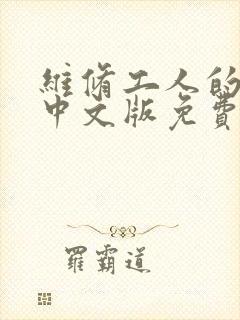 維脩工人的
中文版免費
羅霸道